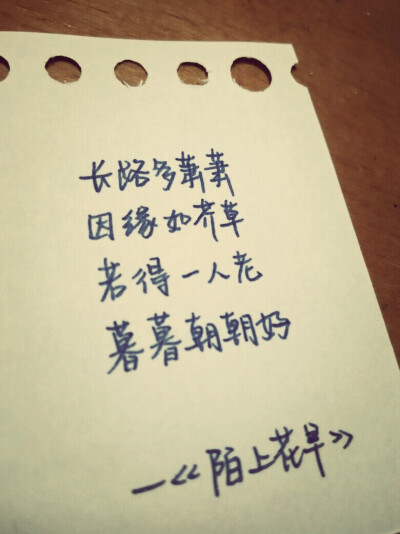 长路多萧萧
因缘如芥草
若得一人老
暮暮朝朝好
—《陌上花早》